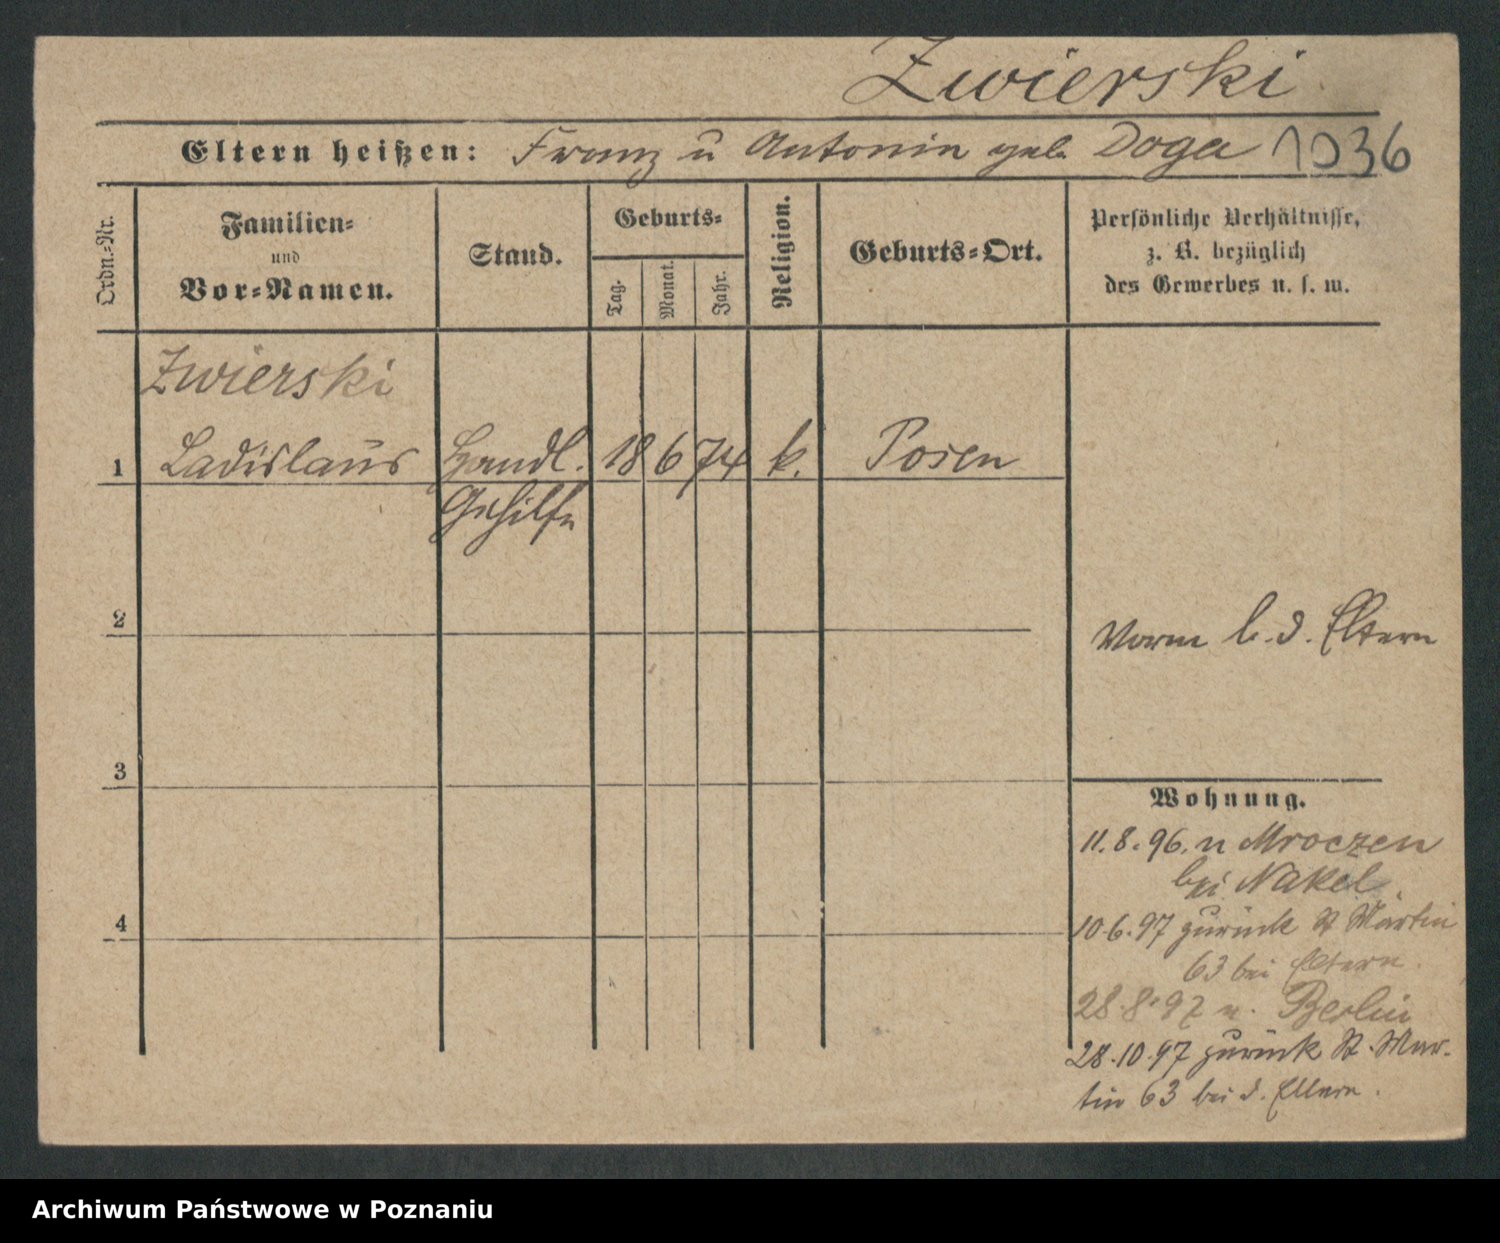 Zwierski
Eltern heißen: Franz u Antonin geb. Doga 1036
Ordn.-Nr.
Familien-
und
Vor-Namen.
Stand.
Geburts-
Tag.
Monat.
Jahr.
Religion.
Geburts-Ort.
Persönliche Verhältnisse,
z. B. bezüglich
des Gewerbes u. s. w.
Zwierski
1 Ladislaus Handl. 18 6 74 k. Posen
Gehilfe
2
Vorm b. d. Eltern
3
Wohnung.
11.8.96. n Mroczen
bei Nakel.
4
10.6.97 zurück St Martin
63 bei Eltern.
28.8.97 n. Berlin
28.10.97 zurück St. Mar-
tin 63 bei d. Eltern.
Archiwum Państwowe w Poznaniu